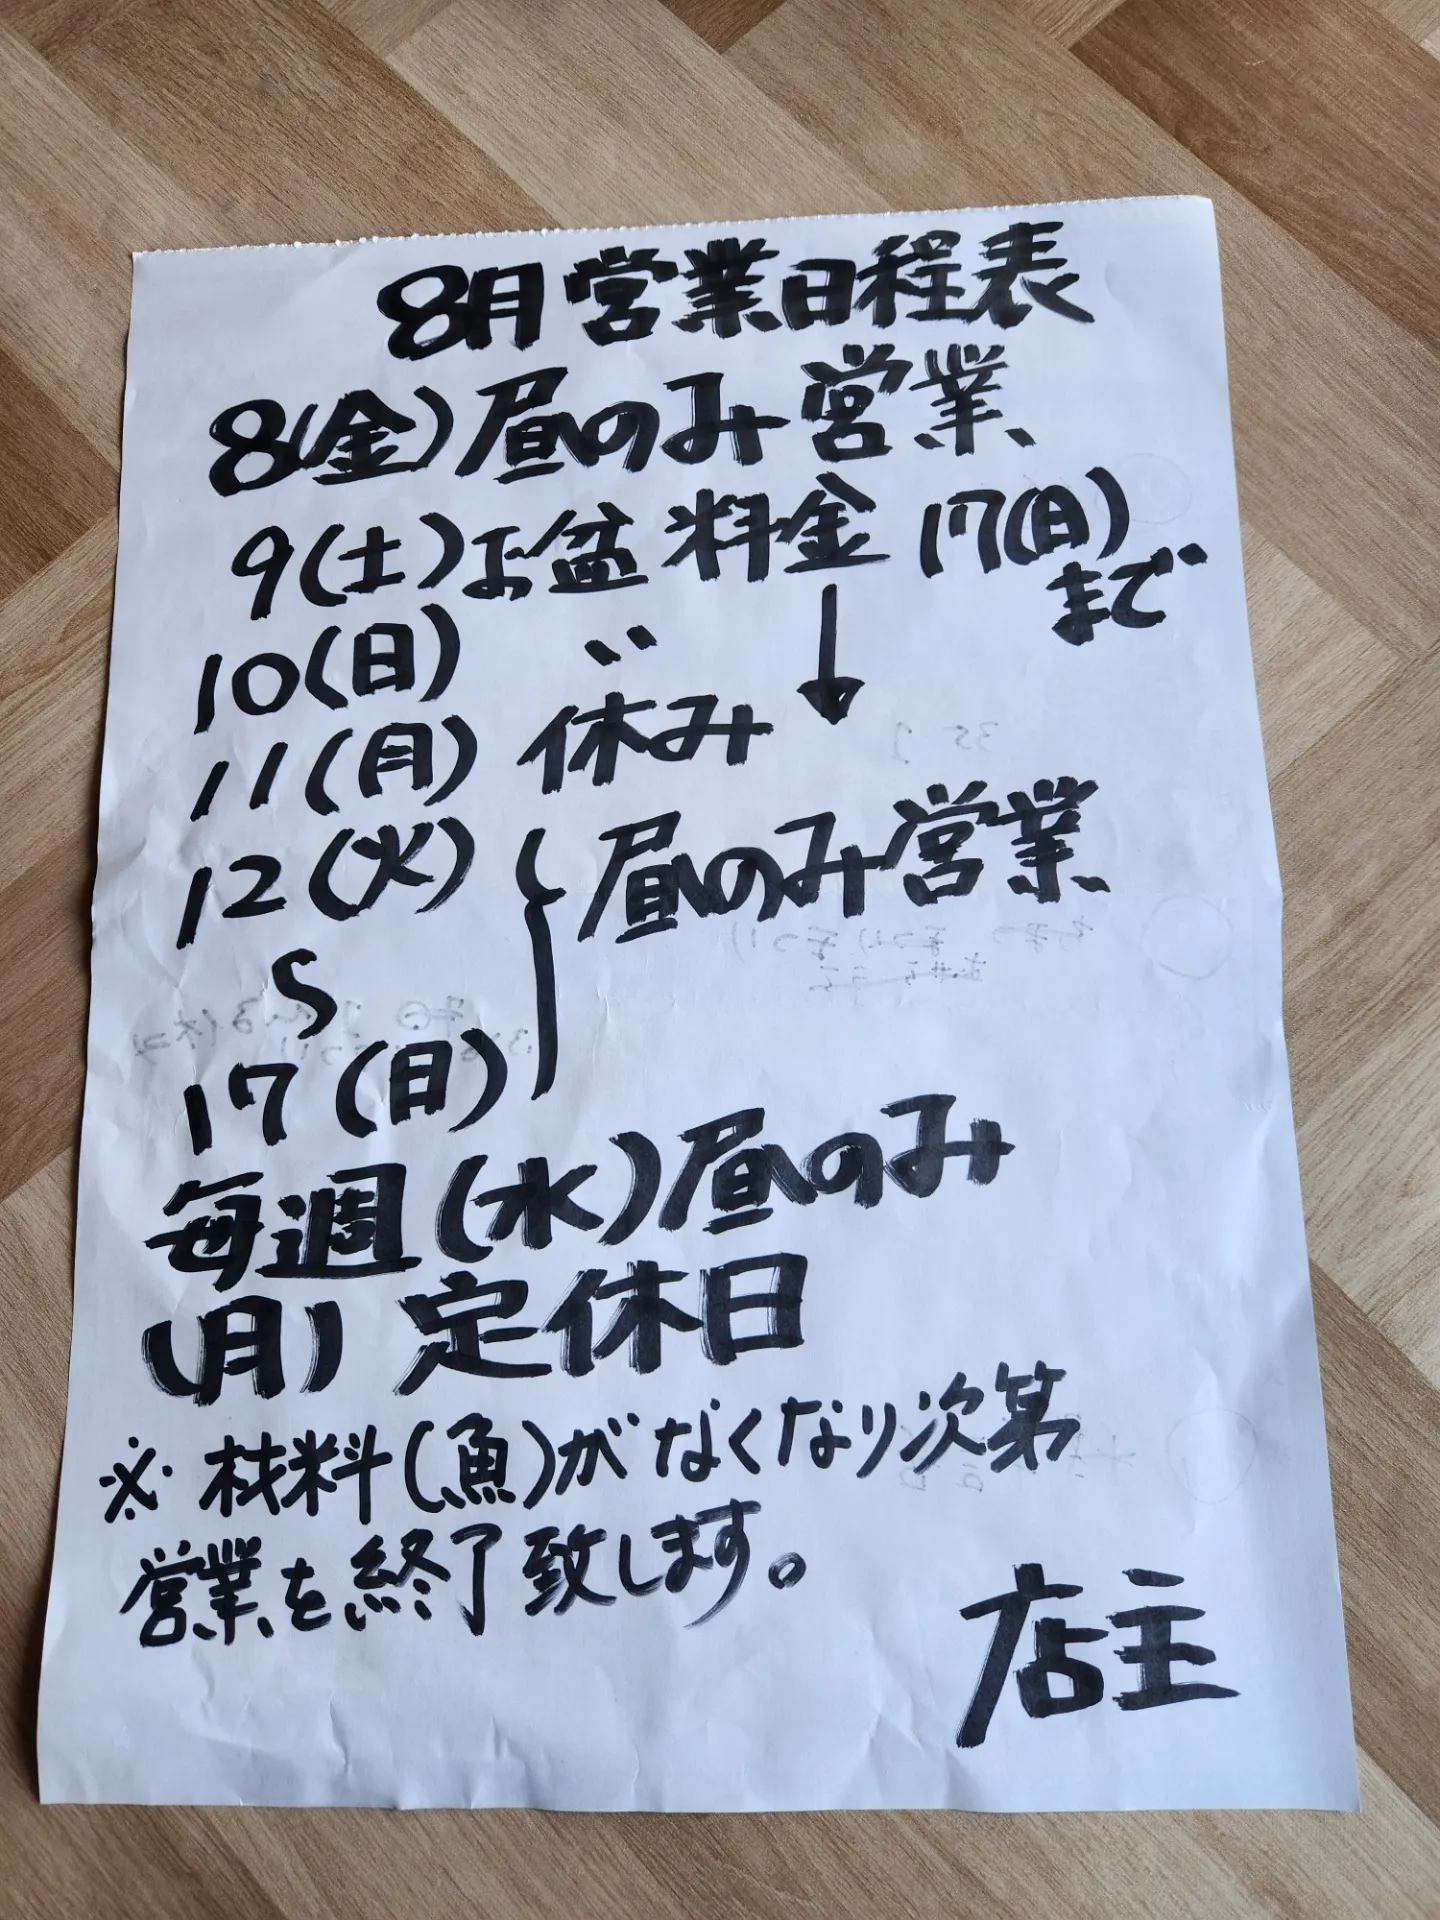 8月営業日程表
8(金)昼のみ営業
9(土)お盆料金 17(日)
まで
10(日) 〃 ↓
11(月) 休み
12(火) } 昼のみ営業
S
17(日)
毎週(水)昼のみ
(月) 定休日
※ 材料(魚)がなくなり次第
営業を終了致します。
店主